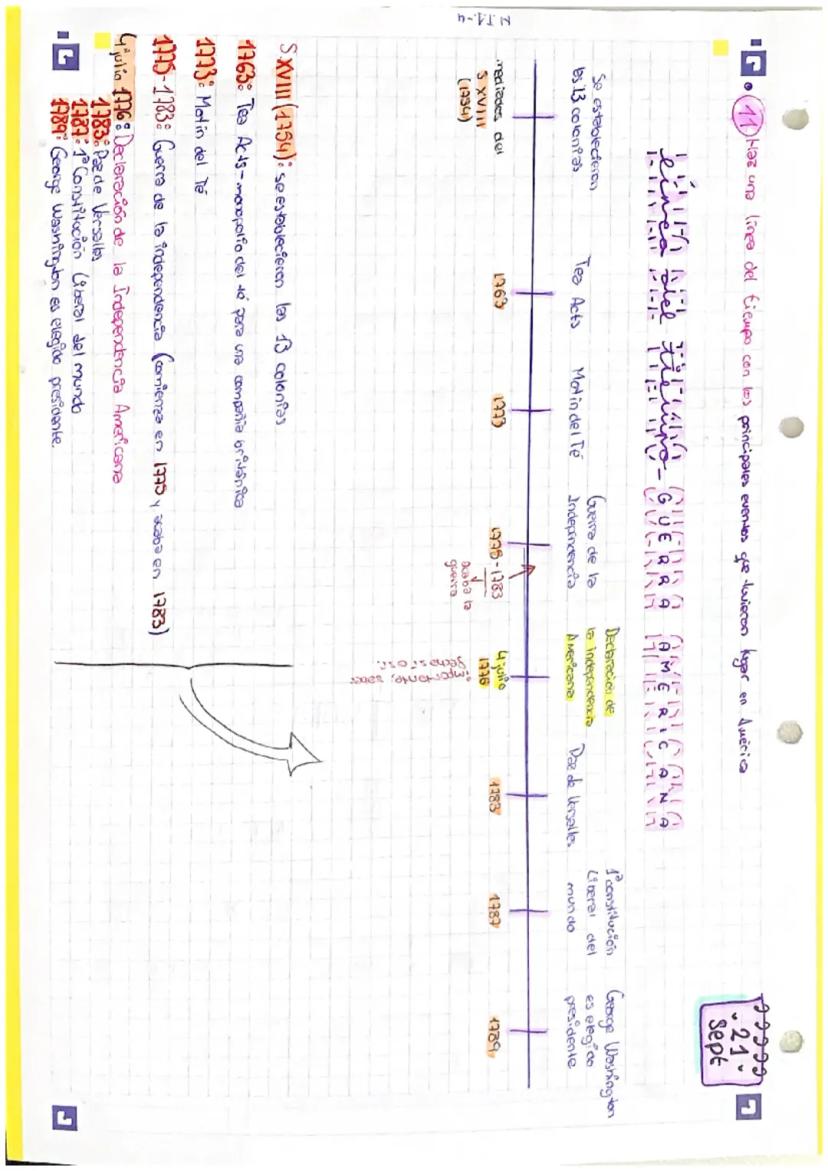 11) Haz una línea del tiempo con los principales eventos que tuvieron lugar en América
21
Sept
Línea del tiempo - GUERRA AMERICANA
Se establecieron
las 13 colonias
Tea Acts
Motín del Té
Guerra de la
Independencia
Declaración de
la independencia
Americana
Paz de Versalles
1ª constitución
Liberal del
mundo
George Washington
es elegido
presidente
mediados del
S XVIII
(1754)
1763
1773
1775-1783
acaba la
guerra
4 julio
1776
1783
1787
1789
S XVIII (1754): se establecieron las 13 colonias
1763: Tea Acts - monopolio del té para una compañía británica
1773: Motín del Té
1775-1783: Guerra de la independencia (comienza en 1775 y acaba en 1783)
4 julio 1776: Declaración de la Independencia Americana
1783: Paz de Versalles
1787: 1ª Constitución Liberal del mundo
1789: George Washington es elegido presidente.